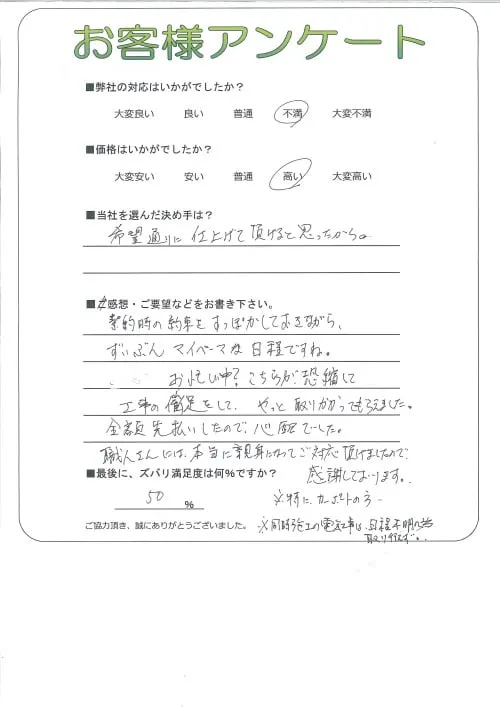 お客様アンケート
■弊社の対応はいかがでしたか？
大変良い 良い 普通 不満 大変不満
■価格はいかがでしたか？
大変安い 安い 普通 高い 大変高い
■当社を選んだ決め手は？
希望通りに仕上げて頂けると思ったから。
■感想・ご要望などをお書き下さい。
契約時の約束をすっぽかしておきながら、
ずいぶんマイペースな日程ですね。
お忙し中？こちらが恐縮して
工事の催促をして、やっと取りかかってもらえました。
全額先払いしたので、心配でした。
職人さんには、本当に親身になってご対応頂けましたので、
感謝しております。
■最後に、ズバリ満足度は何％ですか？
50 %
※特に、カーポートの方
ご協力頂き、誠にありがとうございました。
※同時施工の電気工事は、日程不明の為